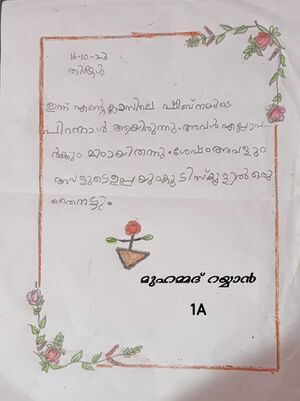 16-10-23
തിങ്കൾ
ഇന്ന് എന്റെ ക്ലാസിലെ ഷിബ്നയുടെ
പിറന്നാൾ ആയിരുന്നു. അവൾ എല്ലാവ
ർക്കും മിഠായി തന്നു. ശേഷം അവളും
അവളുടെ ഉപ്പയും കൂടി സ്കൂളിൽ ഒരു
തൈ നട്ടു.
മുഹമ്മദ് റയ്യാൻ
1A